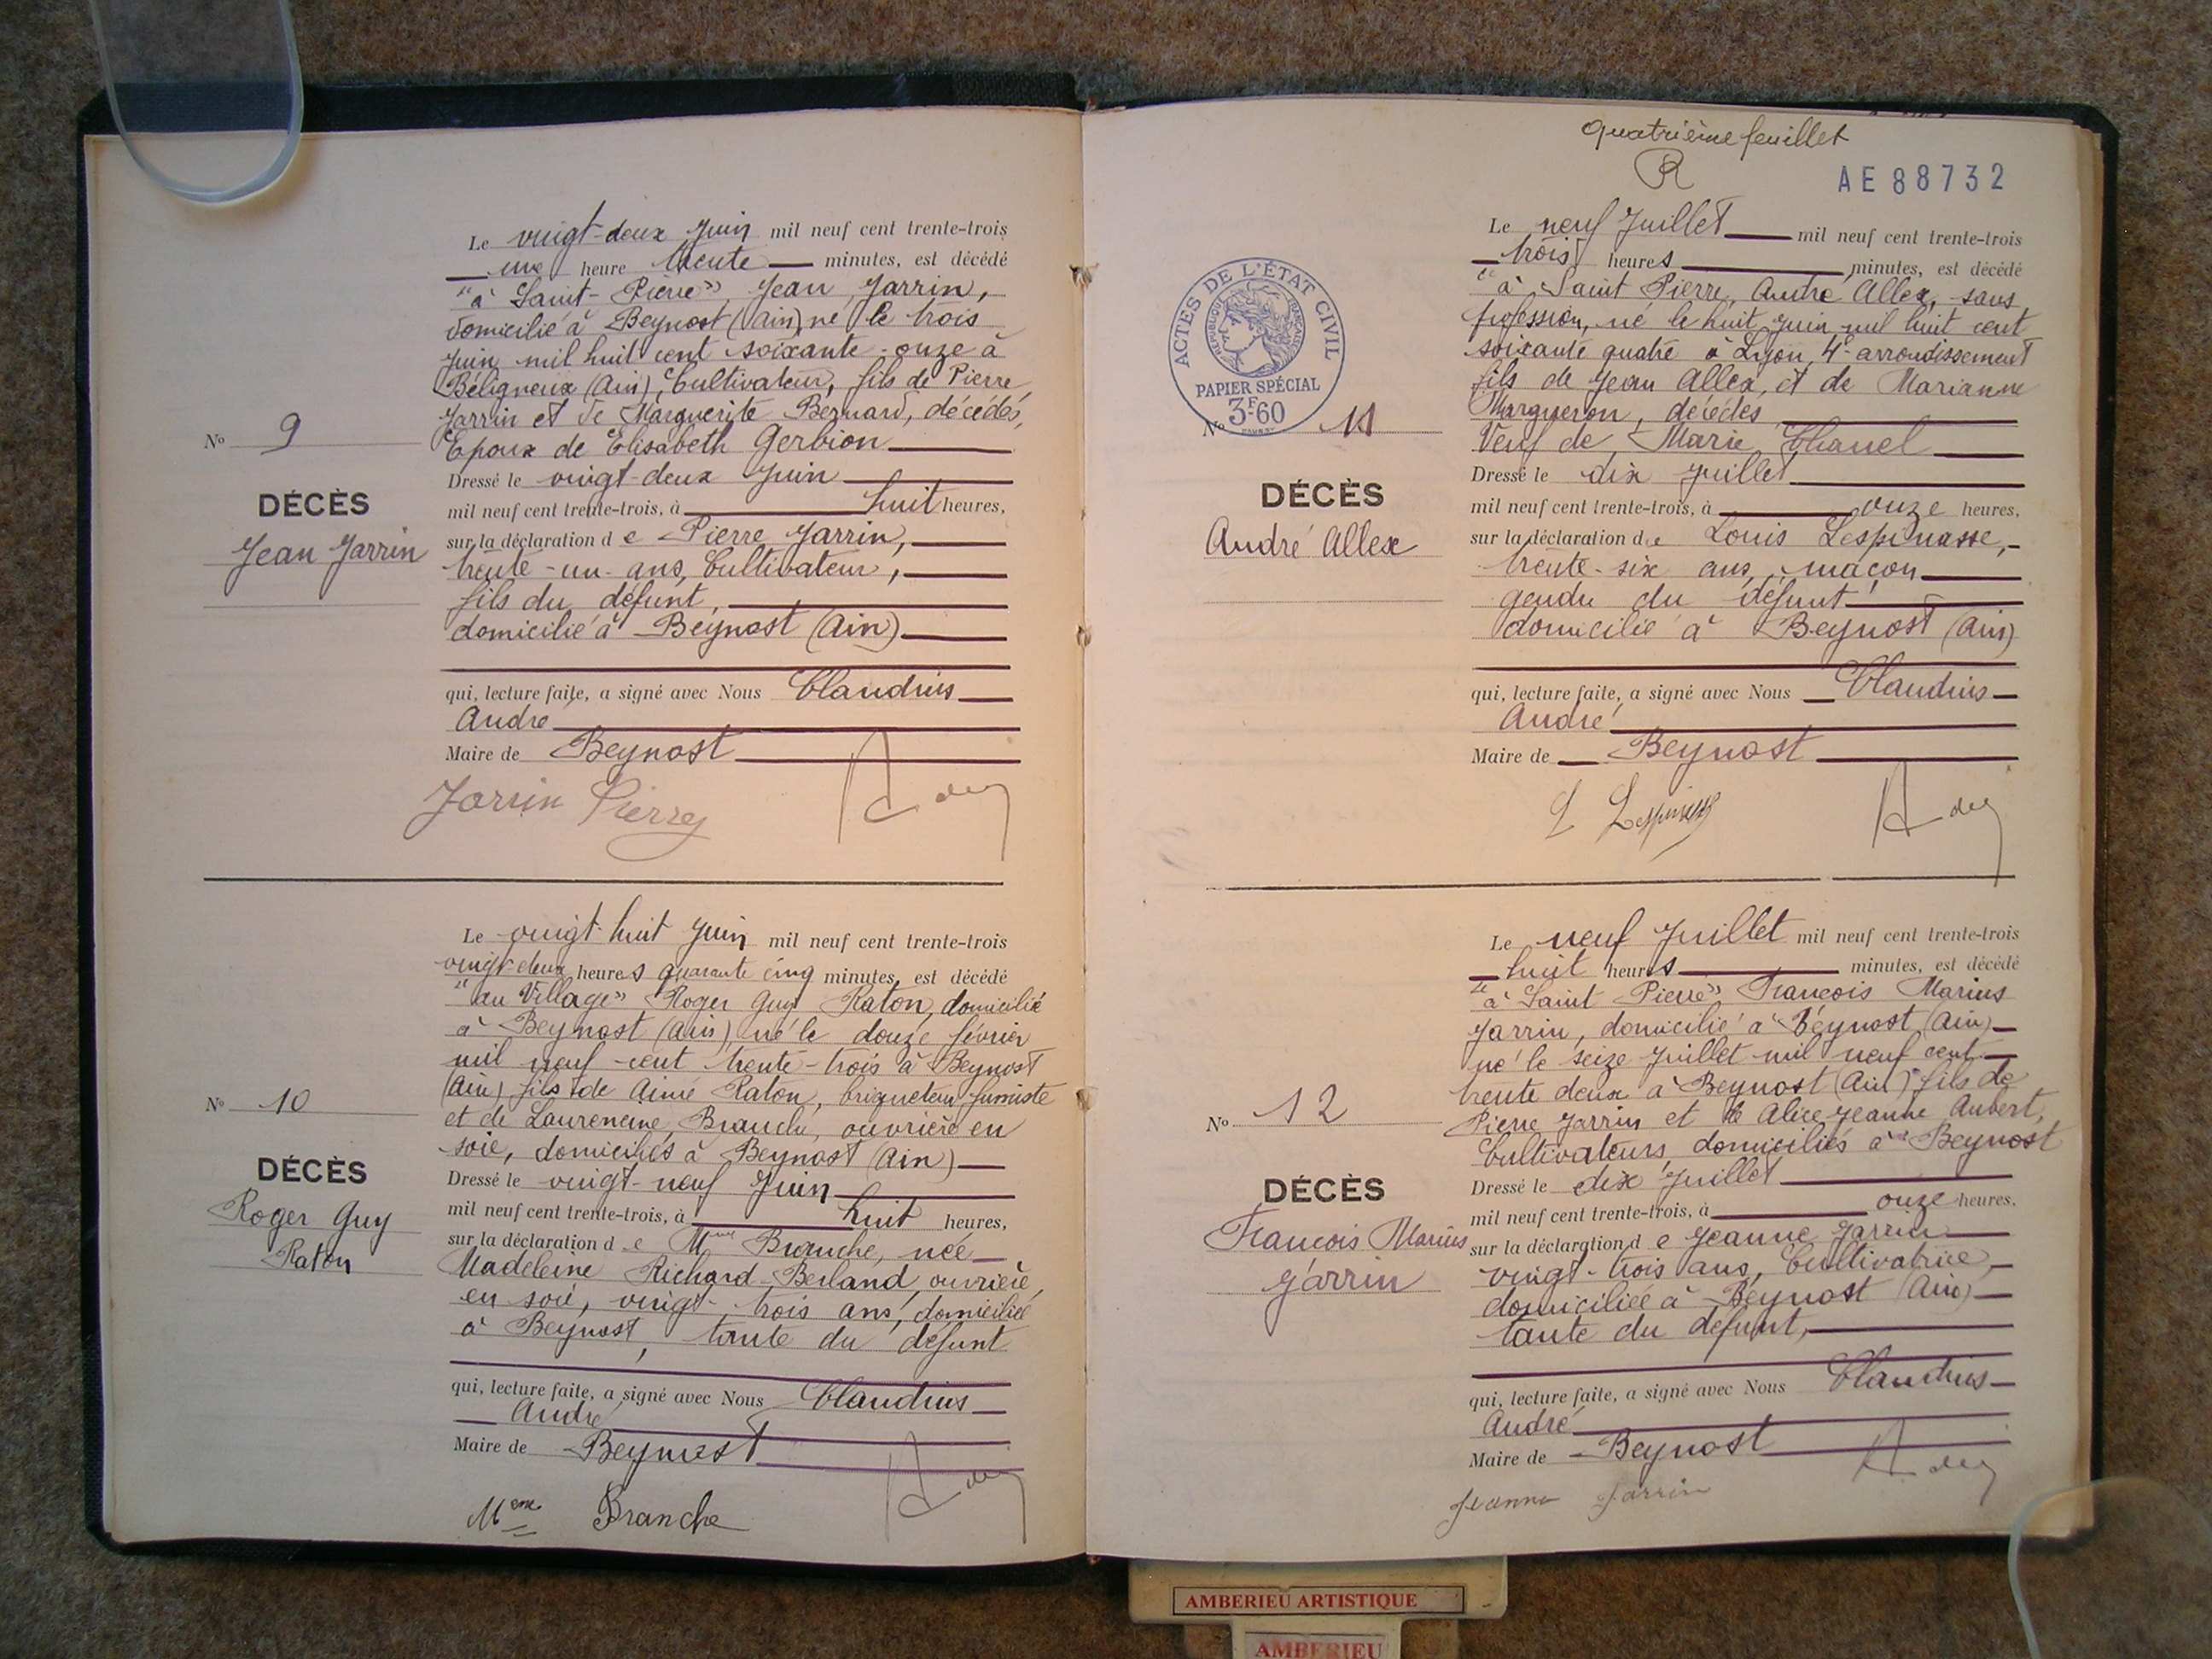 Le vingt-deux Juin mil neuf cent trente-trois
une heure trente minutes, est décédé
"à Saint-Pierre", Jean Jarrin,
domicilié à Beynost (Ain) né le trois
Juin mil huit cent soixante-onze à
Béligneux (Ain), Cultivateur, fils de Pierre
Jarrin et de Marguerite Bernard, décédés,
Epoux de Elisabeth Gerbion
Dressé le vingt-deux Juin
mil neuf cent trente-trois, à huit heures,
sur la déclaration de Pierre Jarrin,
trente-un ans, Cultivateur,
fils du défunt,
domicilié à Beynost (Ain)
qui, lecture faite, a signé avec Nous Claudius
André
Maire de Beynost
Jarrin Pierre
No 9
DÉCÈS
Jean Jarrin
Le vingt-huit Juin mil neuf cent trente-trois
vingt-deux heures quarante cinq minutes, est décédé
"au Village" Roger Guy Raton, domicilié
à Beynost (Ain) né le douze février
mil neuf cent trente-trois à Beynost
(Ain) fils de Aimé Raton, briqueteur fumiste
et de Laurencine Branche, ouvrière en
soie, domiciliés à Beynost (Ain)
Dressé le vingt-neuf Juin
mil neuf cent trente-trois, à huit heures,
sur la déclaration de Mme Branche, née
Madeleine Richard-Berland, ouvrière
en soie, vingt-trois ans, domiciliée
à Beynost, tante du défunt
qui, lecture faite, a signé avec Nous Claudius
André
Maire de Beynost
Mme Branche
No 10
DÉCÈS
Roger Guy
Raton
quatrième feuillet
R
AE 88732
Le neuf Juillet mil neuf cent trente-trois
trois heures minutes, est décédé
"à Saint Pierre, André Allex, sans
profession, né le huit Juin mil huit cent
soixante quatre à Lyon, 4e arrondissement
fils de Jean Allex, et de Marianne
Margueron, décédés
Veuf de Marie Chanel
Dressé le dix Juillet
mil neuf cent trente-trois, à onze heures,
sur la déclaration de Louis Lespinasse,
trente-six ans, maçon
gendre du défunt
domicilié à Beynost (Ain)
qui, lecture faite, a signé avec Nous Claudius
André
Maire de Beynost
L Lespinasse
ACTES DE L'ÉTAT CIVIL
RÉPUBLIQUE FRANÇAISE
PAPIER SPÉCIAL
3F60
No 11
DÉCÈS
André Allex
Le neuf Juillet mil neuf cent trente-trois
huit heures minutes, est décédé
"à Saint Pierre" François Marius
Jarrin, domicilié à Beynost (Ain)
né le seize Juillet mil neuf cent
trente deux à Beynost (Ain) fils de
Pierre Jarrin et de Alice Jeanne Aubert,
Cultivateurs, domiciliés à Beynost
Dressé le dix Juillet
mil neuf cent trente-trois, à onze heures,
sur la déclaration de Jeanne Jarrin
vingt-trois ans, Cultivatrice,
domiciliée à Beynost (Ain)
tante du défunt,
qui, lecture faite, a signé avec Nous Claudius
André
Maire de Beynost
Jeanne Jarrin
No 12
DÉCÈS
François Marius
Jarrin
AMBERIEU ARTISTIQUE
AMBERIEU